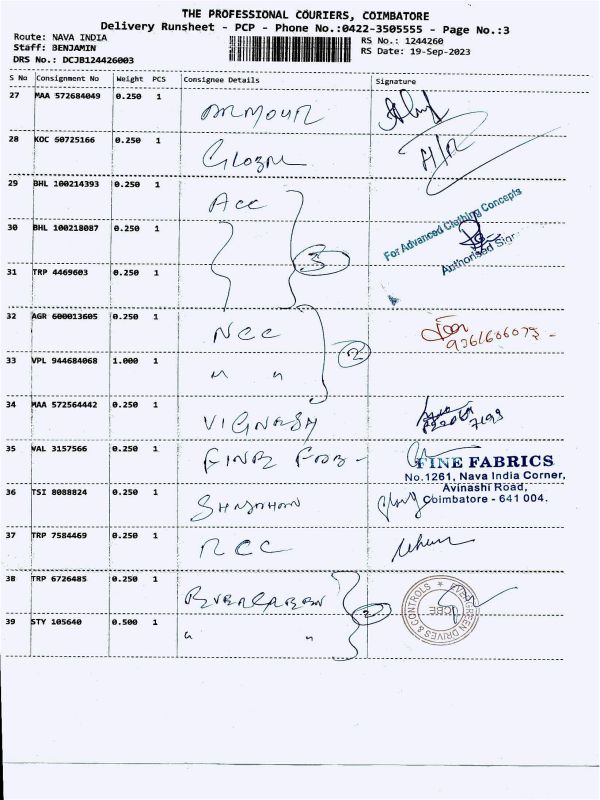 THE PROFESSIONAL COURIERS, COIMBATORE
Delivery Runsheet - PCP - Phone No.:0422-3505555 - Page No.:3
Route: NAVA INDIA
RS No.: 1244260
Staff: BENJAMIN
RS Date: 19-Sep-2023
DRS No.: DCJB124426003
S No Consignment No Weight PCS Consignee Details Signature
27 MAA 572684049 0.250 1 ARMOUR
28 KOC 60725166 0.250 1 GLOBAL
29 BHL 100214393 0.250 1 ACC
For Advanced Clothing Concepts
30 BHL 100218087 0.250 1
Authorised Sign
31 TRP 4469603 0.250 1
3
32 AGR 600013605 0.250 1 NCC
2
33 VPL 944684068 1.000 1 " "
34 MAA 572564442 0.250 1 VIGNESH
35 VAL 3157566 0.250 1 FINE FAB -
FINE FABRICS
No.1261, Nava India Corner,
Avinashi Road,
Coimbatore - 641 004.
36 TSI 8088824 0.250 1
37 TRP 7584469 0.250 1 RCC
38 TRP 6726485 0.250 1 EVERGREEN
2
EVERGREEN DRIVES & CONTROLS * CBE
39 STY 105640 0.500 1 " "